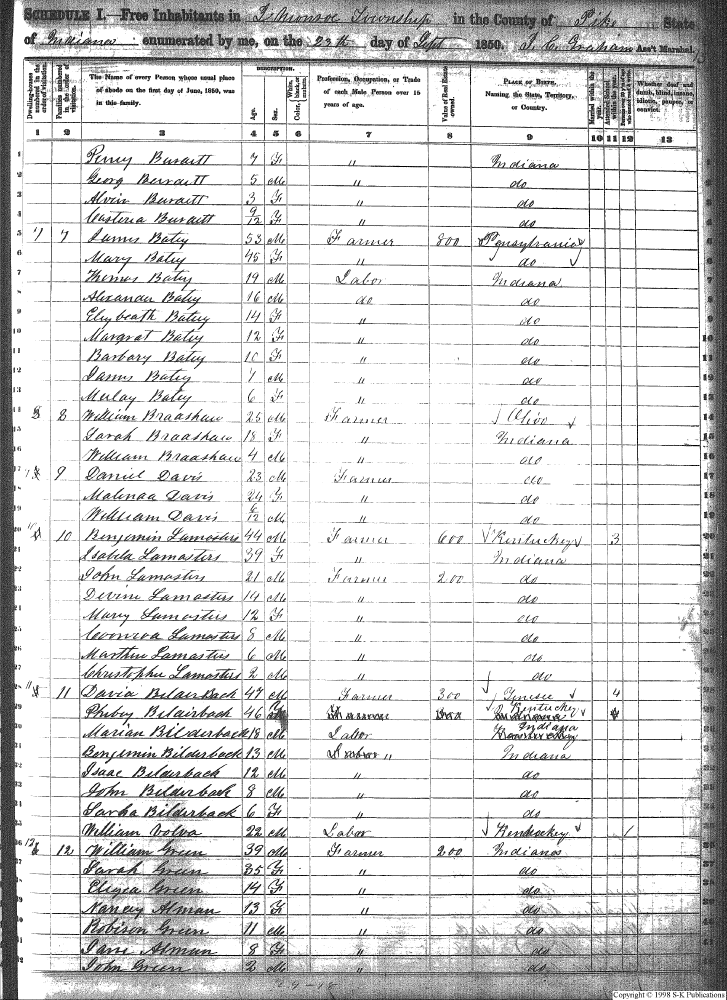 SCHEDULE I.—Free Inhabitants in Monroe Township in the County of Pike State
of Indiana enumerated by me, on the 28th day of Sept 1850. J. C. Graham Ass't Marshal.
Dwelling-houses numbered in the order of visitation.
Families numbered in the order of visitation.
The Name of every Person whose usual place of abode on the first day of June, 1850, was in this family.
DESCRIPTION.
Age.
Sex.
White, black, or mulatto. Color,
Profession, Occupation, or Trade of each Male Person over 15 years of age.
Value of Real Estate owned.
PLACE OF BIRTH. Naming the State, Territory, or Country.
Married within the year.
Attended School within the year.
Whether deaf and dumb, blind, insane, idiotic, pauper, or convict.
1 2 3 4 5 6 7 8 9 10 11 12 13
1 Perney Buraett 7 F " Indiana
2 Georg Berraett 5 M " do
3 Alvin Buraett 3 F " do
4 Casteria Buraett 9/12 F " do
5 7 7 James Batey 53 M Farmer 800 Pensylvania
6 Mary Batey 45 F " do
7 Thomas Batey 19 M Labor Indiana
8 Alexander Batey 16 M do do
9 Elizbeath Batey 14 F " do
10 Margrat Batey 12 F " do
11 Barbary Batey 10 F " do
12 James Batey 7 M " do
13 Batey 6 F " do
14 8 8 William Braashaw 25 M Farmer Ohio
15 Sarah Braashaw 18 F " Indiana
16 William Braashaw 4 M " do
17 9 Daniel Davis 23 M Farmer do
18 Malinaa Davis 24 F " do
19 William Davis 6/12 M " do
20 10 Benjemin Lamasters 44 M Farmer 600 Kentuckey 3
21 Isabela Lamasters 39 F " Indiana
22 John Lamasters 21 M Farmer 200 do
23 Devine Lamasters 14 M " do
24 Mary Lamasters 12 F " do
25 Coonroa Lamasters 8 M " do
26 Marthen Lamasters 6 M " do
27 Christopher Lamasters 2 M " do
28 11 Davia Bilderback 47 M Farmer 300 Tenisee 4
29 Phebey Bilairback 46 Kentuckey
30 Marian Bilderback 18 M Labor Indiana
31 Benjemin Bilderback 13 M " Indiana
32 Isaac Bilderback 12 M " do
33 John Bilderback 8 M " do
34 Sarha Bilderback 6 F " do
35 William Volva 22 M Labor Kentuckey 1
36 12 12 William Green 39 M Farmer 200 Indiana
37 Sarah Green 35 F " do
38 Green 14 F " do
39 Nancy Alman 13 F " do
40 Robison Green 11 M " do
41 Jane Alman 8 F " do
42 John Green 2 M " do
Copyright © 1998 S-K Publications